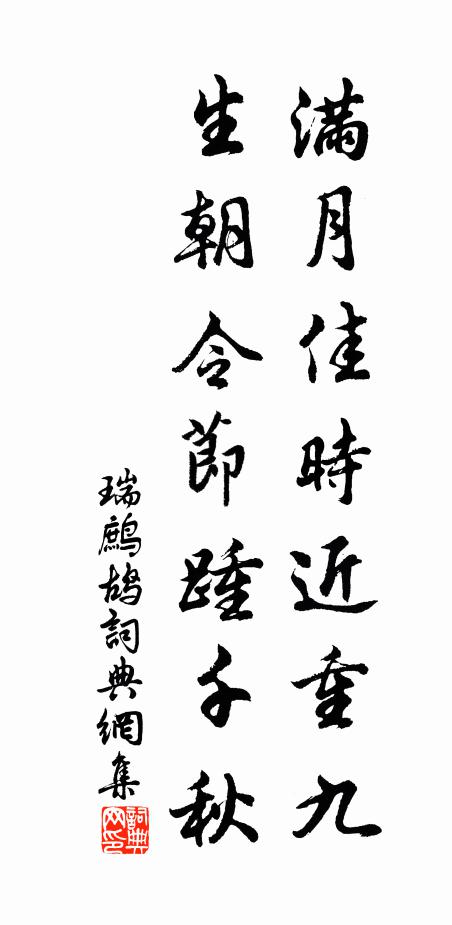 滿月佳時近重九
生朝令節踵千秋
瑞鷓鴣詞典網集
詞典网印